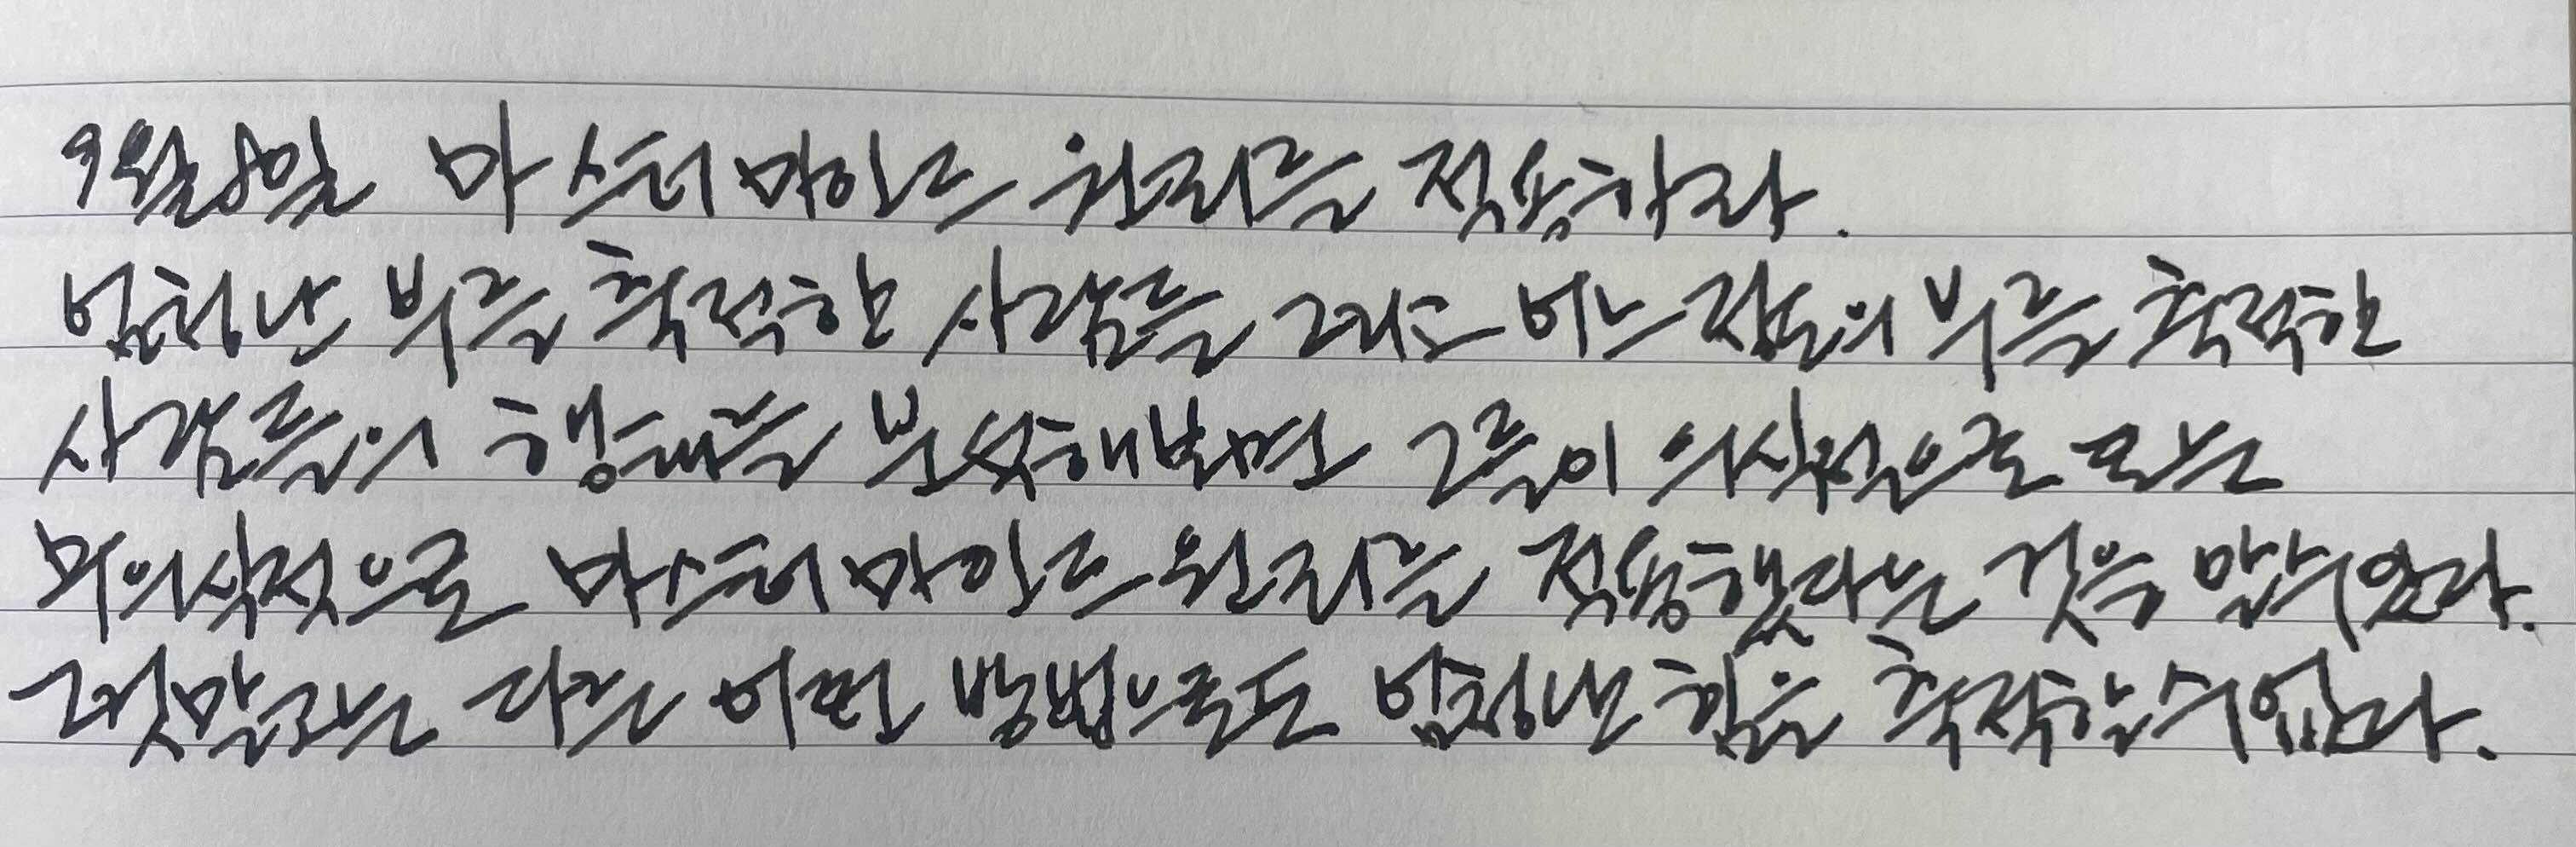 9월8일 마스터 마인드 원리를 적용하라.
엄청난 부를 축적한 사람들 그리고 어느 정도의 부를 축적한
사람들의 행태를 분석해보면 그들이 의식적으로 또는
무의식적으로 마스터 마인드 원리를 적용했다는 것을 알 수 있다.
그것 말고는 다른 어떤 방법으로도 엄청난 힘을 축적할 수 없다.